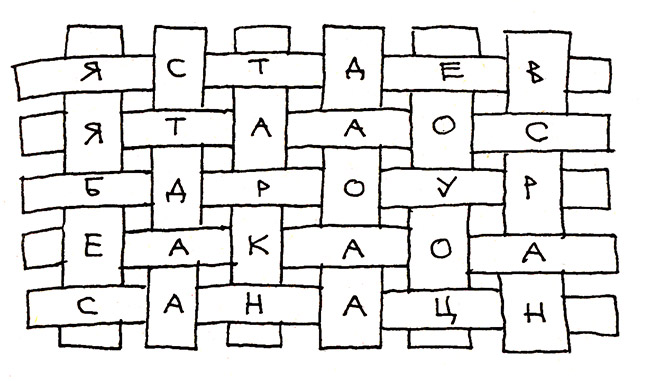 Я С Т Д Е В
Я Т А А О С
Б Д Р О У Р
Е А К А О А
С А Н А Ц Н